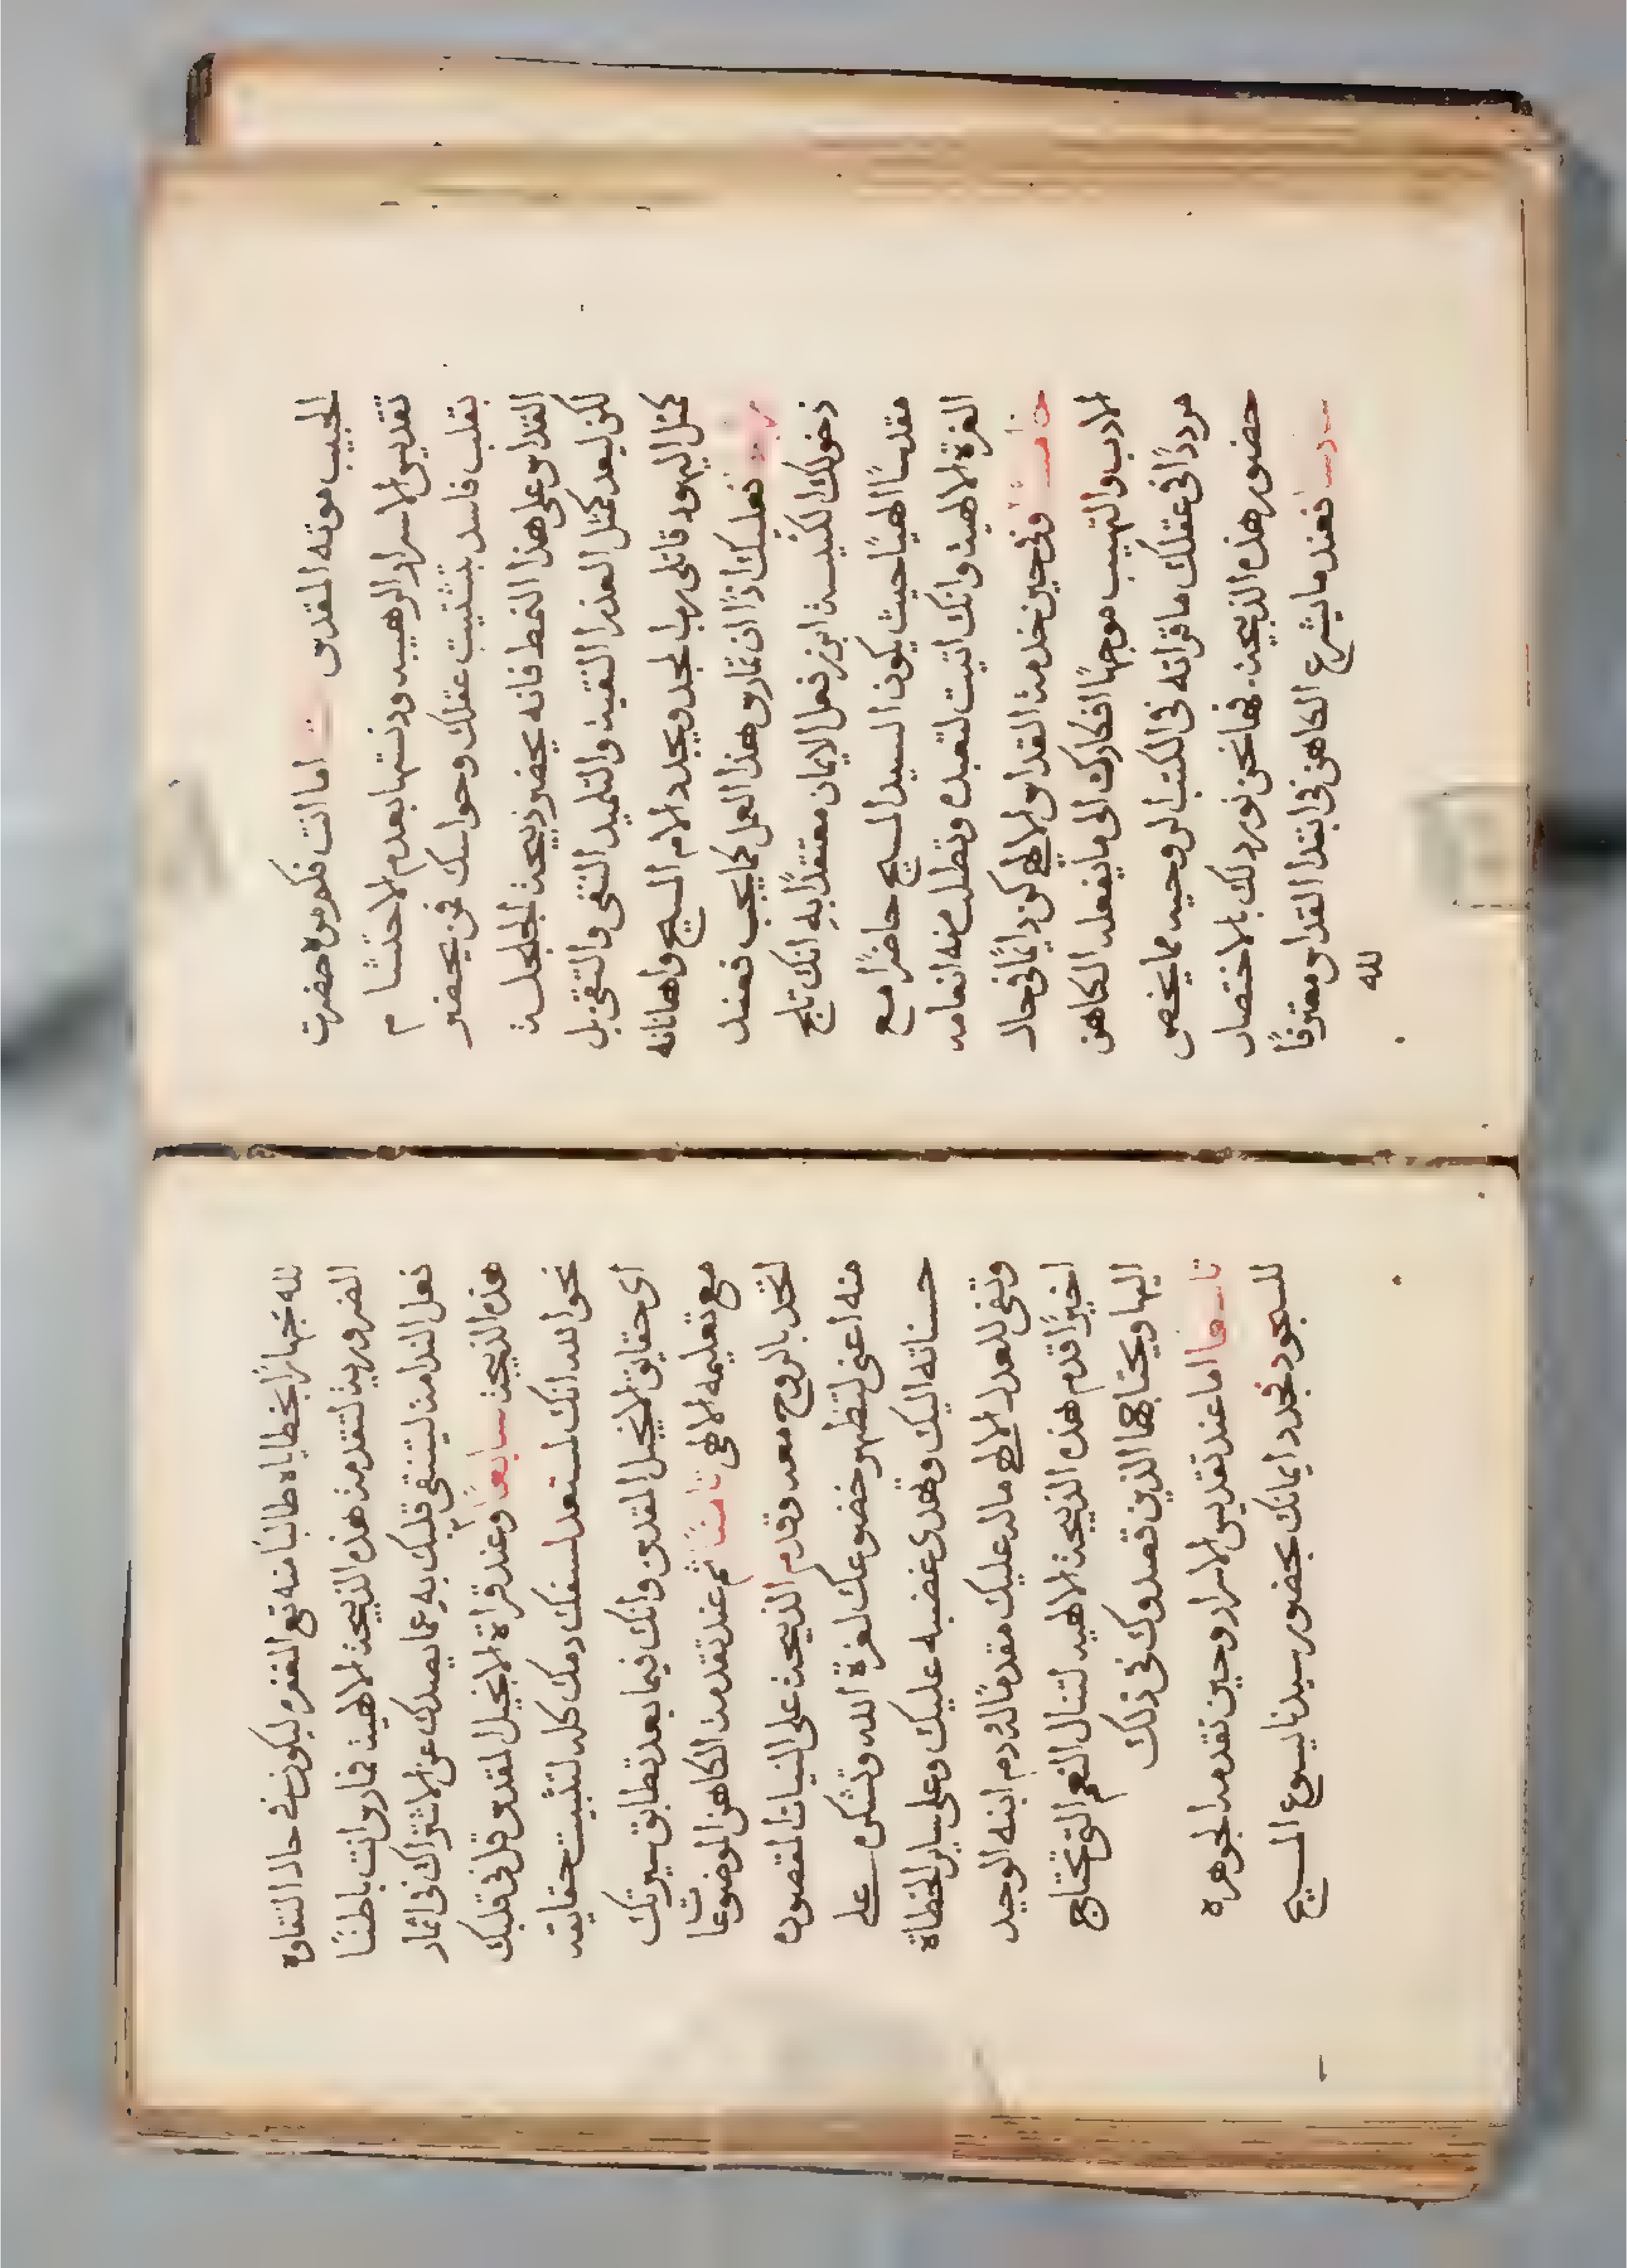 الحبيب موته المقدس اما انت فكومى حضرت
تقديس الاسرار الرهيبه ودنستها بعدم الاحتشام
بقلب فاسد بتشتيت عقلك وحواسك فمن يحضر
القداس على هذا النمط فانه يحضر ذبيحة الجلجلة
لكن ليعد كمثل العذرا النقية والتلميد النقى والتقى بل
كمثل اليهود قاتلى رب المجد ويجدد الام المسيح واهاناته
فعليك اذًا ان تمارس هذا العمل كما يجب فعند
دخولك الكنيسة ابرز فعل الايمان معتقدًا به انك تلج
مقدسًا الهيًا حيث يكون السيد المسيح حاضرًا مع
العزة الالهية وانك اتيت لتعبده وتطلب منه انعامه
خامسًا وفى حين خدمة القداس الالهى كن دايمًا فى حال
الادب والتهيب موجهًا افكارك الى ما يفعله الكاهن
مرددًا فى عقلك ما قراته فى الكتب الروحيه مما يخص
حضور هذه الذبيحة. فها نحن نورد لك بالاختصار
سادسا فعندما يشرع الكاهن فى ابتدا القداس معترفًا
لله
لله جهارًا بخطاياه طالبًا منه تع المغفره ليكون فى حال النقاوه
الضرورية لتقدمة هذه الذبيحة الالهية فمارس انت باطنًا
فعل الندامة ليتنقى قلبك به عما يصدك عن الاشتراك فى اثمار
هذه الذبيحة سابعًا وعند قراة الانجيل المقدس قل فى قلبك
نحو الله انك مستعد لسفك دمك كله لتثبيت حقايقه
اى حقايق الانجيل المقدس وانك فيما بعد تطابق سيرتك
مع تعليمه الالهى ثامنًا ثم عند تقدمة الكاهن الموضوعات
اتحد بالروح معه وقدم الذبيحة على النيات المقصوده
منه اعنى لتظهر خضوعك لعزة الله وتشكره على
حسناته اليك وتهدى غضبه عليك وعلى ساير الخطاة
وتفى للعدل الالهى ماله عليك مقدمًا له دم ابنه الوحيد
اخيرًا قدم هذه الذبيحة الالهيه لتنال النعم التى تحتاج
اليها ويحتاجها الذين قصدوك فى ذلك
تاسعا اما عند تقديس الاسرار وحين تقدمه الجوهره
للسجود فجدد ايمانك بحضور سيدنا يسوع المسيح